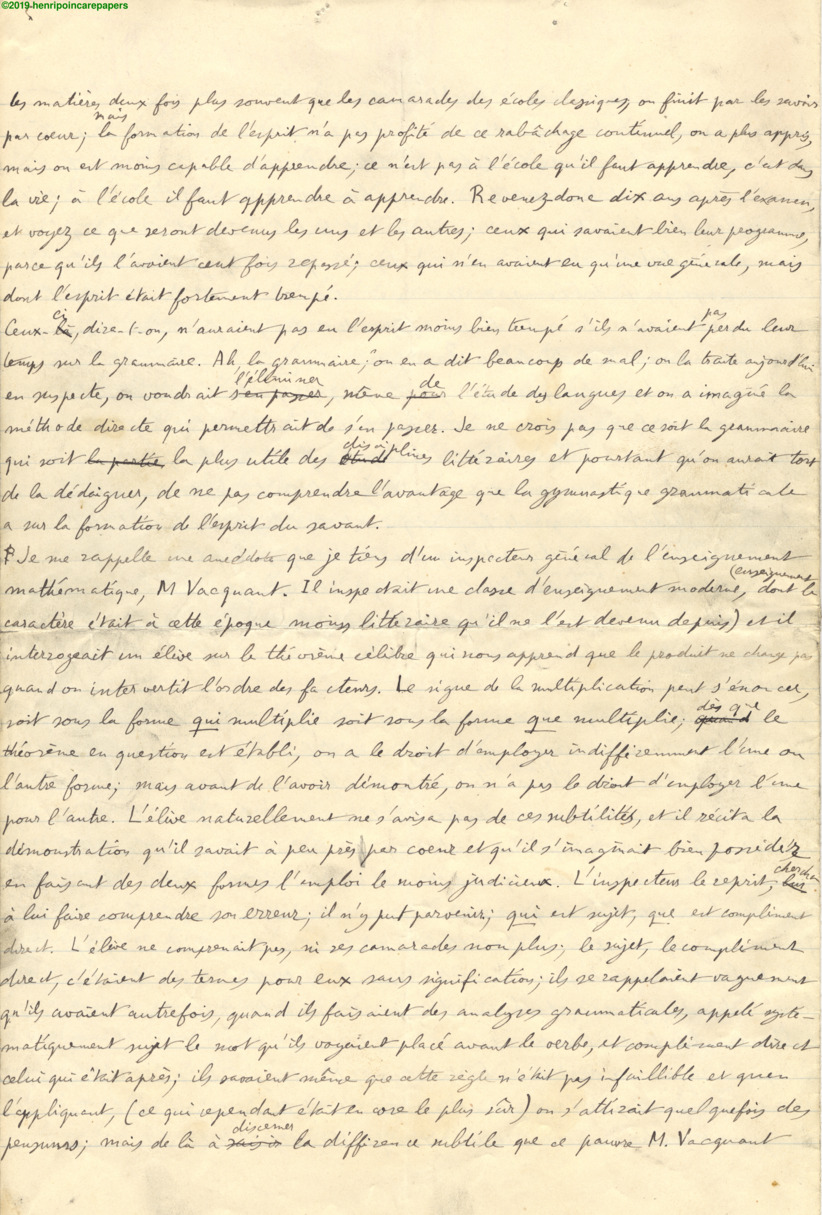 ©2019-henripoincarepapers
les matières deux fois plus souvent que les camarades des écoles classiques, on finit par les savoir
mais
par coeur; la formation de l'esprit n'a pas profité de ce rabâchage continuel, on a plus appris,
mais on est moins capable d'apprendre; ce n'est pas à l'école qu'il faut apprendre, c'est dans
la vie; à l'école il faut apprendre à apprendre. Revenez donc dix ans après l'examen,
et voyez ce que seront devenus les uns et les autres; ceux qui savaient bien leur programme,
parce qu'ils l'avaient cent fois repassé; ceux qui n'en avaient eu qu'une vue générale, mais
dont l'esprit était fortement trempé.
ci pas
Ceux-là, dira-t-on, n'auraient pas eu l'esprit moins bien trempé s'ils n'avaient perdu leur
temps sur la grammaire. Ah, la grammaire, on en a dit beaucoup de mal; on la traite aujourd'hui
l'éliminer de
en suspecte, on voudrait s'en passer, même pour l'étude des langues et on a imaginé la
méthode directe qui permettrait de s'en passer. Je ne crois pas que ce soit la grammaire
disciplines
qui soit la partie la plus utile des littéraires et pourtant qu'on aurait tort
de la dédaigner, de ne pas comprendre l'avantage que la gymnastique grammaticale
a sur la formation de l'esprit du savant.
Je me rappelle une anecdote que je tiens d'un inspecteur général de l'enseignement
(enseignement
mathématique, M Vacquant. Il inspectait une classe d'enseignement moderne, dont le
caractère était à cette époque moins littéraire qu'il ne l'est devenu depuis) et il
interrogeait un élève sur le théorème célèbre qui nous apprend que le produit ne change pas
quand on intervertit l'ordre des facteurs. Le signe de la multiplication peut s'énoncer,
dès que
soit sous la forme qui multiplie soit sous la forme que multiplie; quand le
théorème en question est établi, on a le droit d'employer indifféremment l'une ou
l'autre forme; mais avant de l'avoir démontré, on n'a pas le droit d'employer l'une
pour l'autre. L'élève naturellement ne s'avisa pas de ces subtilités, et il récita la
démonstration qu'il savait à peu près par coeur et qu'il s'imaginait bien posséder
chercha
en faisant des deux formes l'emploi le moins judicieux. L'inspecteur le reprit,
à lui faire comprendre son erreur; il n'y put parvenir; qui est sujet, que est complément
direct. L'élève ne comprenait pas, ni ses camarades non plus; le sujet, le complément
direct, c'étaient des termes pour eux sans signification; ils se rappelaient vaguement
qu'ils avaient autrefois, quand ils faisaient des analyses grammaticales, appelé systé-
matiquement sujet le mot qu'ils voyaient placé avant le verbe, et complément direct
celui qui était après; ils savaient même que cette règle n'était pas infaillible et qu'en
l'appliquant, (ce qui cependant était encore le plus sûr) on s'attirait quelquefois des
discerner
pensums; mais de là à saisir la différence subtile que ce pauvre M. Vacquant